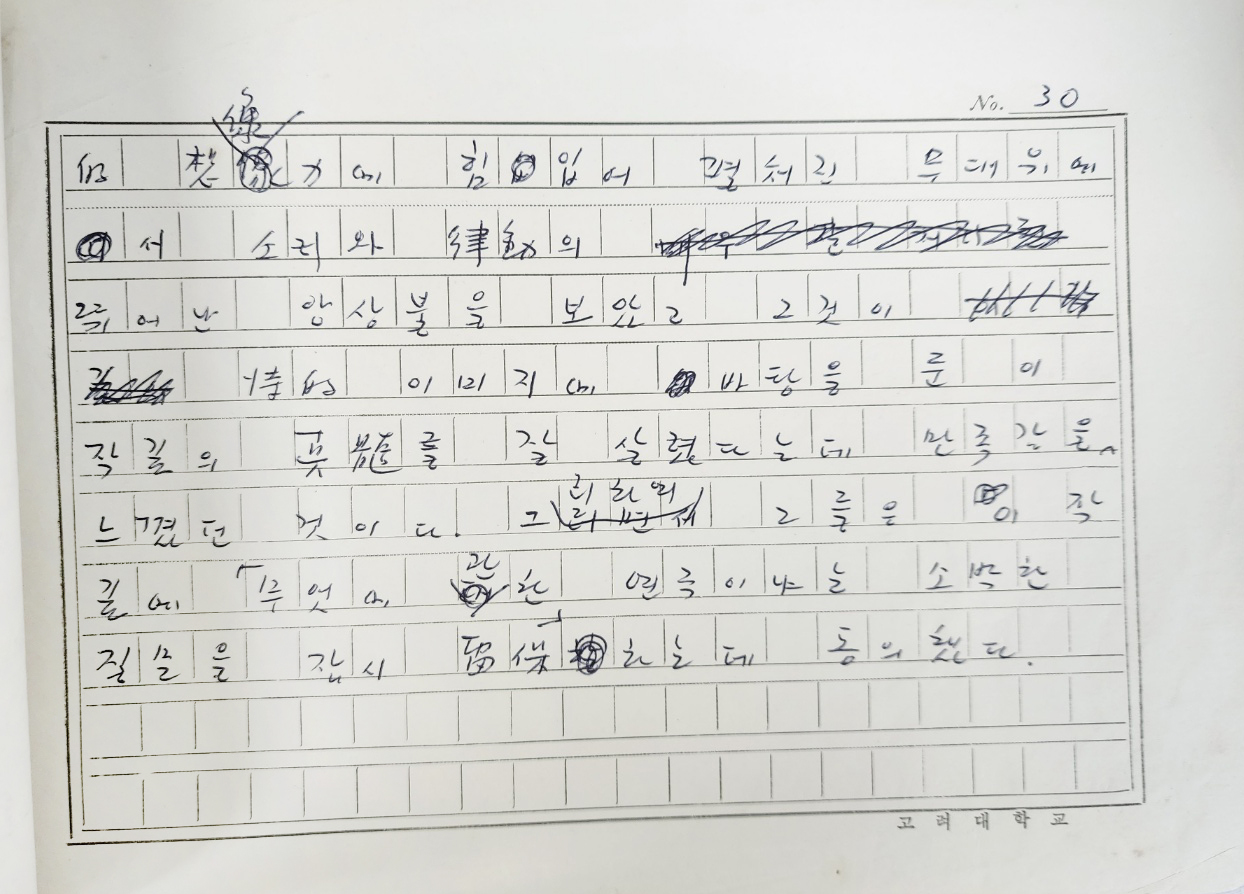 No. 30
的 가에 힘입어 펼쳐진 무대위에
서 소리와 律動의
뛰어난 앙상블을 보았고 그것이
的 이미지에 바탕을 둔 이
작품의 을 잘 살렸다는데 만족감을
느꼈던 것이다. 그리하여 그들은 이 작
품에 「무엇에 관한 연극이냐」는 소박한
질문을 잠시 留保하는데 동의했다.
고려대학교